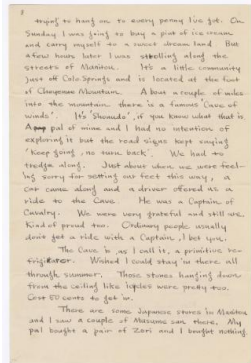 trying to hang on to every penny I've got. On
Sunday I was going to buy a pint of ice cream
and carry myself to a sweet dream land. But
a few hours later I was strolling along the
streets of Manitou. It's a little community
just off Colo. Springs and is located at the foot
of Cheyenne Mountain. About a couple of miles
into the mountain there is a famous 'Cave of
winds'. It's 'Shonudo', if you know what that is.
A pal of mine and I had no intention of
exploring it but the road signs kept saying
'Keep going, no turn back'. We had to
trudge along. Just about when we were feel-
ing sorry for setting our feet this way, a
car came along and a driver offered us a
ride to the Cave. He was a Captain of
Cavalry. We were very grateful and still are.
Kind of proud too. Ordinary people usually
don't get a ride with a Captain, I bet you.
The Cave is, as I call it, a primitive re-
frigerator. Wished I could stay in there all
through summer. Those stones hanging down
from the ceiling like icicles were pretty too.
Cost 50 cents to get in.
There are some Japanese stores in Manitou
and I saw a couple of Musume san there. My
pal bought a pair of Zori and I bought nothing